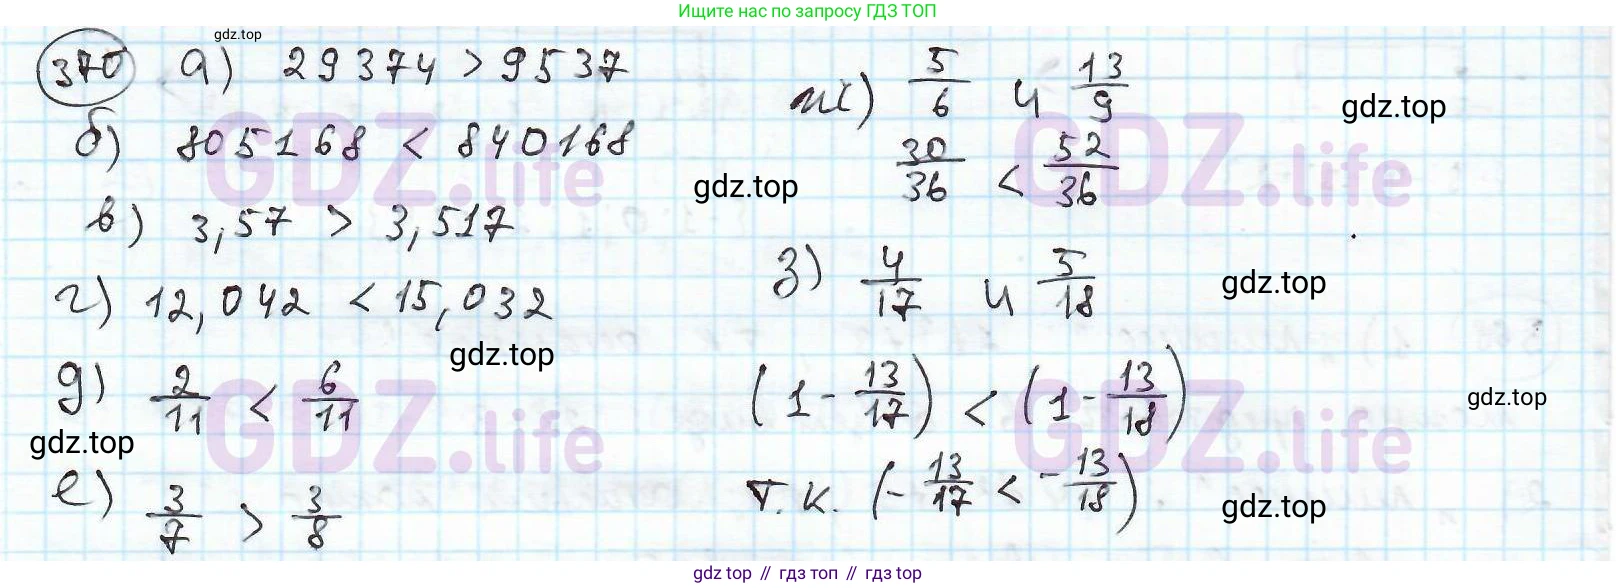 Ищите нас по запросу ГДЗ ТОП
gdz.top
370 а) 29374 > 9537
б) 805168 < 840168
в) 3,57 > 3,517
г) 12,042 < 15,032
gdz.top
д) 2/11 < 6/11
gdz.top
е) 3/7 > 3/8
ж) 5/6 и 13/9
gdz.top
30/36 < 52/36
gdz.top
з) 4/17 и 5/18
gdz.top
(1 - 13/17) < (1 - 13/18)
gdz.top
т.к. (- 13/17 < - 13/18)
gdz.top
GDZ.life
GDZ.life
GDZ.life
GDZ.life
gdz top // гдз топ // гдз top